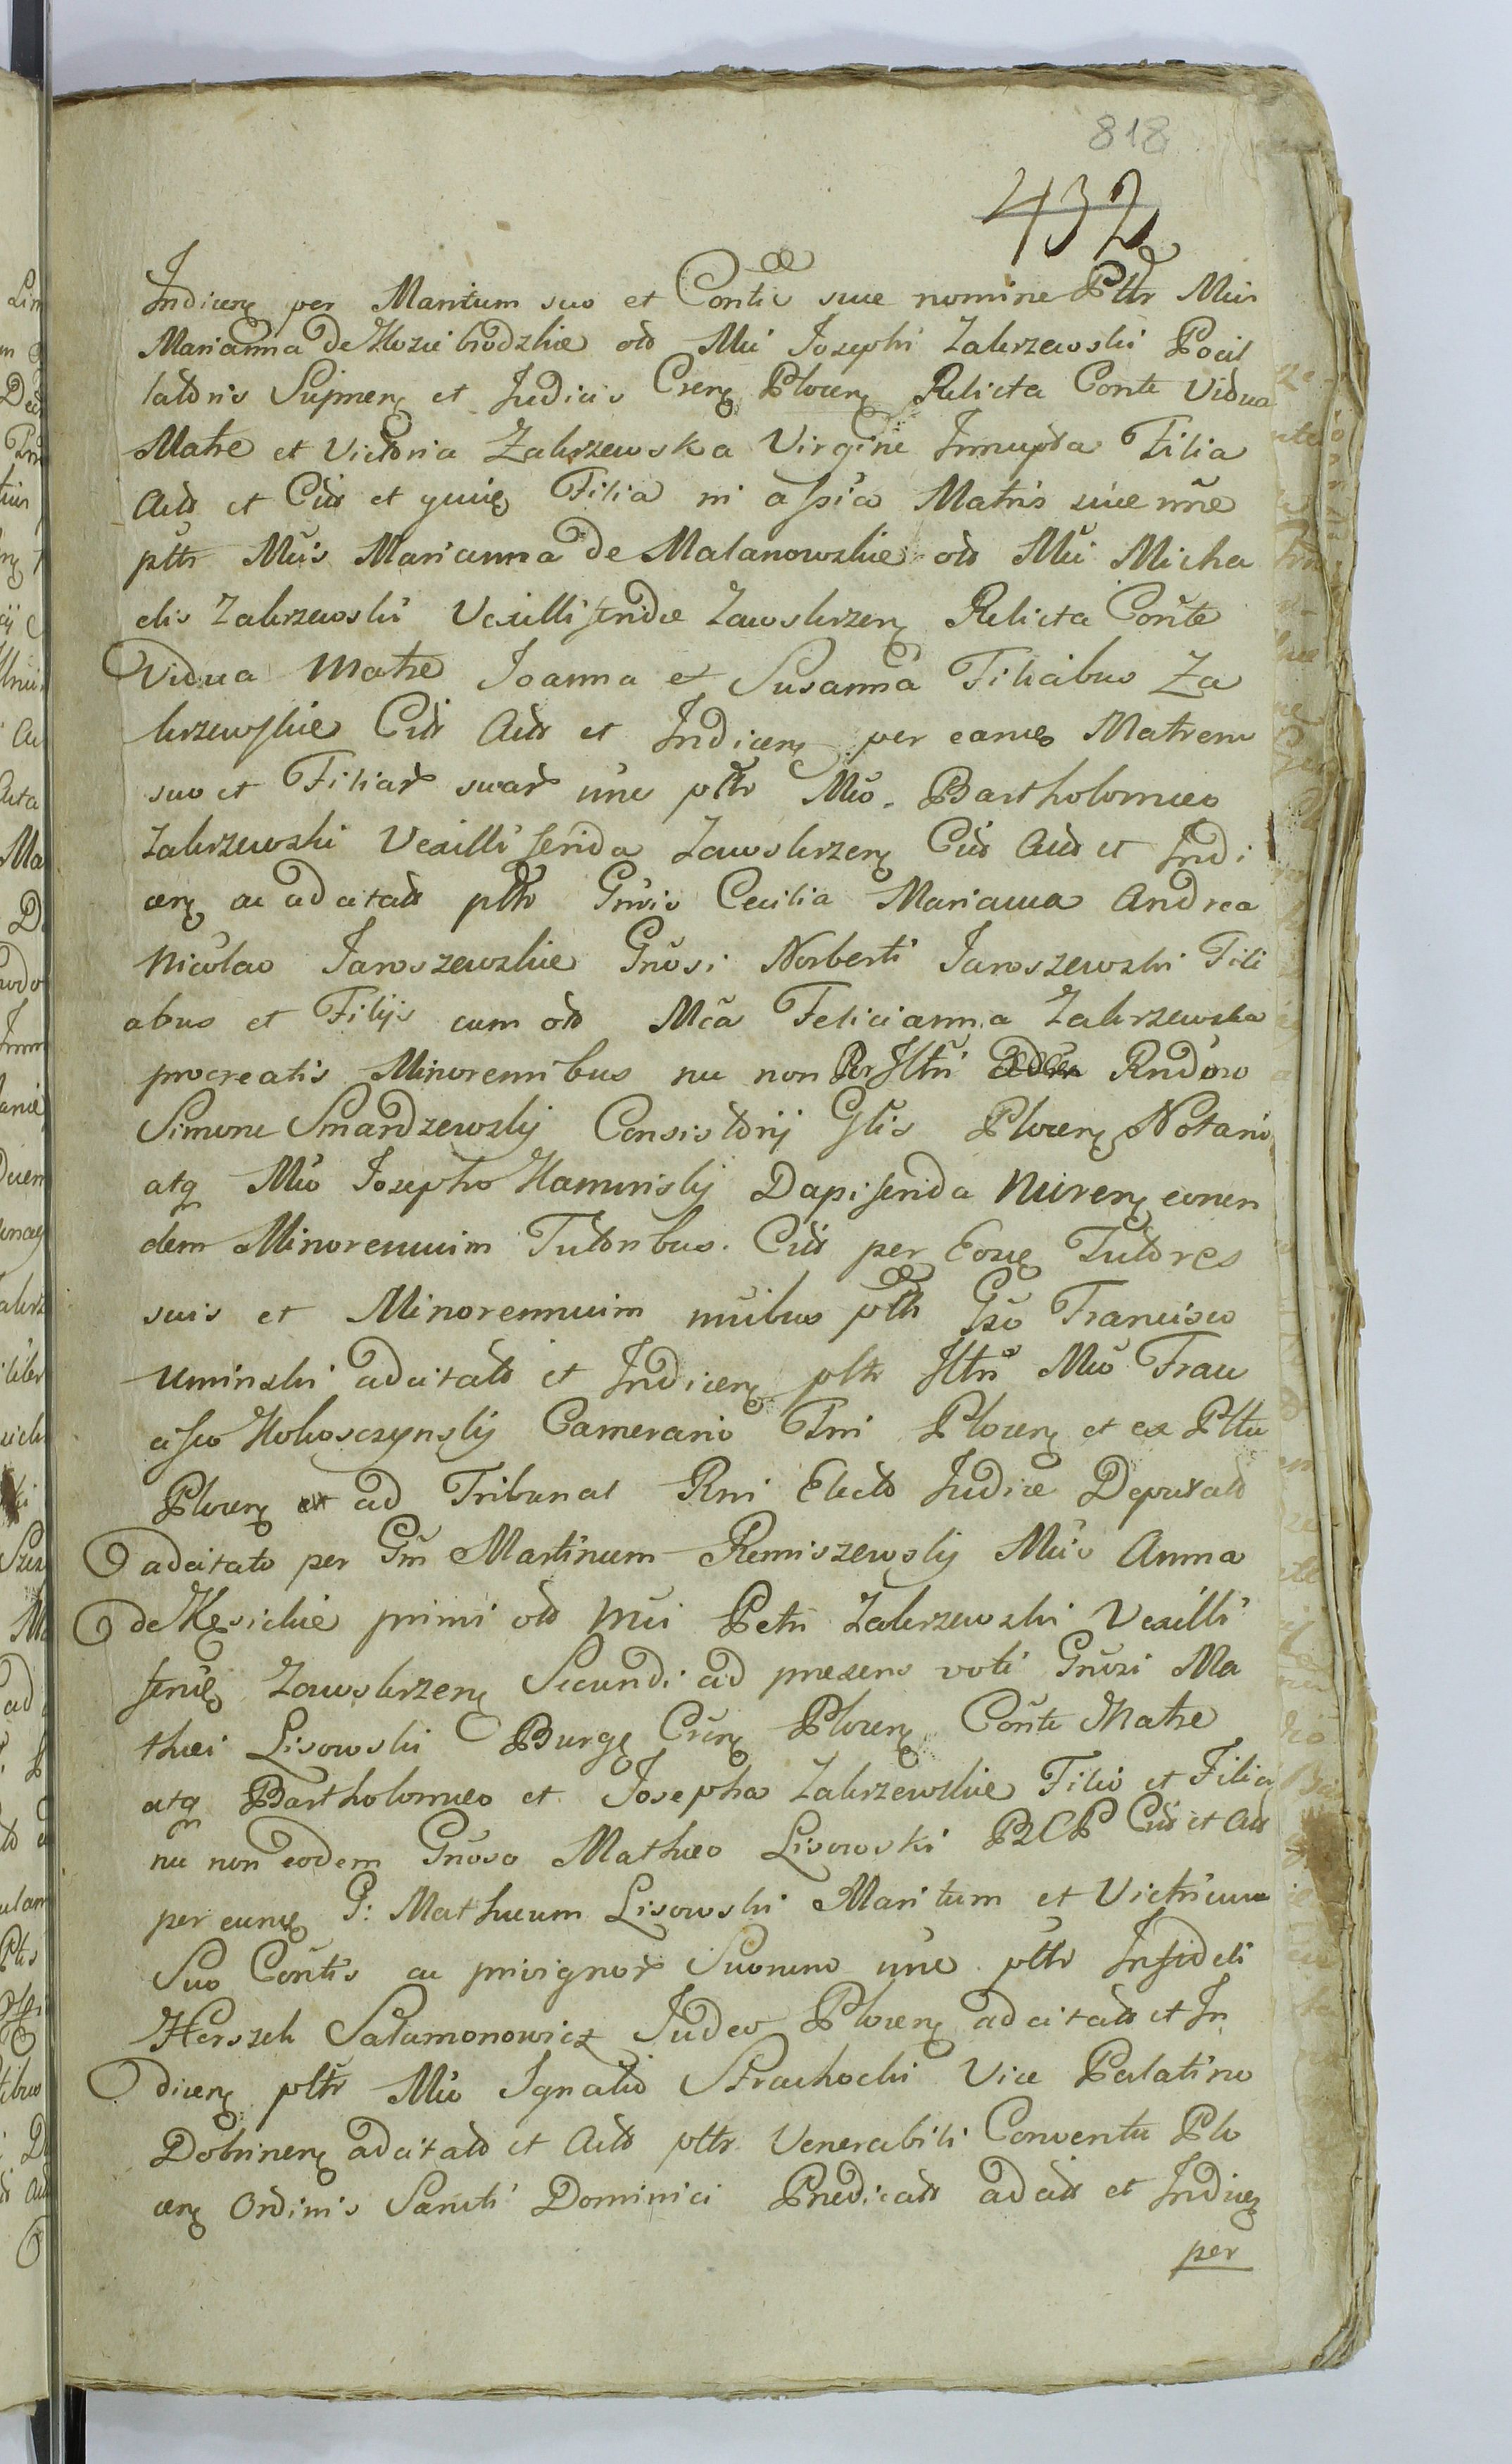 818
432
Indicen per Maritum suo et Contis suæ nomine Pttr Mcis
Marianna de Kozie brodzkie old Mci Josephi Zakrzewski Pocil
latoris Siejmen et Judicis Csen Plocen Relicta Conte Vidua
Matre et Victoria Zakrzewska Virgine Innupta Filia
Acto et Cits et quæ Filia in assia Matris suæ nne
pttr Mcis Marianna de Malanowskie old Mci Micha
elis Zakrzewski Vexilli feridæ Zawskrzen Relicta Conte
Vidua Matre Joanna et Susanna Filiabus Za
krzewskie Cits Acts et Indicen per eame Matrem
suo et Filiar suar nne pttr Mco Bartholomeo
Zakrzewski Vexilli ferida Zawskrzen Cits Acts et Indi
cen ac adcitats pttr Gnsis Cecilia Marianna Andrea
Nicolao Jaroszewskie Gnosi Norberti Jaroszewski Fili
abus et Filijs cum old Mca Felicianna Zakrzewska
procreatis Minorennibus nec non Per Illri Rndo
Simone Smardzewskij Consistorij Glis Plocen Notario
atq Mco Josepho Kaminskij Dapiferida Nuren eorun
dem Minorennium Tutoribus Cits per Eosq Tutores
suis et Minorennium nnibus pttr Gso Francisco
Uminski adcitato et Indicen pttr Illri Mco Fran
cisco Kokosczynskij Camerario Trri Plocen et ex Pttu
Plocen ad Tribunal Rni Electo Judice Deputato
adcitato per Gm Martinum Remiszewskij Mcis Anna
de Kęsickie primi old Mci Petri Zakrzewski Vexilli
feridæ Zawskrzen Secundi ad præsens voti Gnosi Ma
thei Lisowski Burgę Csen Plocen Conte Matre
atq Bartholomeo et Josepha Zakrzewskie Filio et Filia
nec non eodem Gnoso Matheo Lisowski BCP Cits et Acts
per eumq G: Matheum Lisowski Maritum et Victricum
Suo Contis ac privignor Suorum nne pttr Infideli
Herszek Salamonowicz Judeo Plocen adcitato et In
dicen pttr Mco Ignatio Strachocki Vice Palatino
Dobrinen adcitato et Acto pttr Venerabili Conventu Plo
cen Ordinis Sancti Dominici Prædicats adcits et Indicen
per